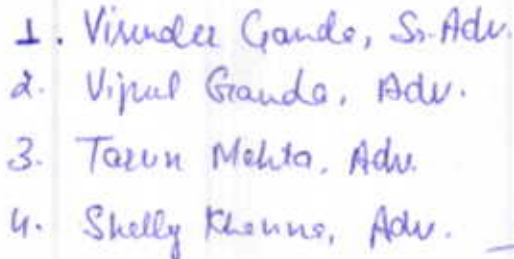 1. Virender Ganda, Sr. Adv.
2. Vipul Ganda, Adv.
3. Tarun Mehta, Adv.
4. Shelly Khanna, Adv.